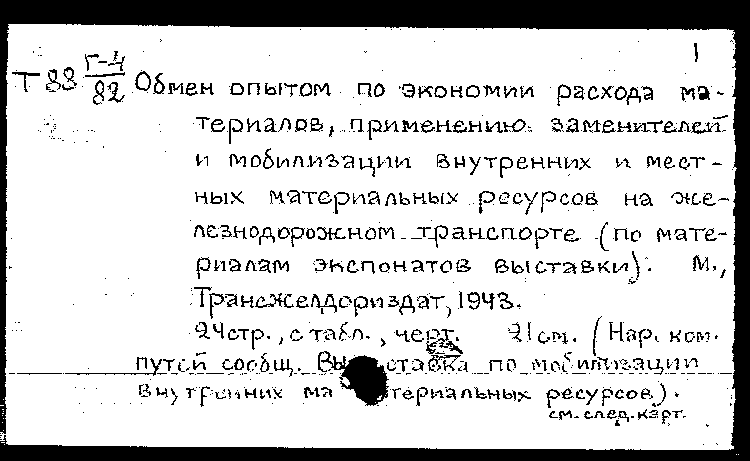 1
Т 83 Г-4/82 Обмен опытом по экономии расхода ма-
териалов, применению заменителей
и мобилизации внутренних и мест-
ных материальных ресурсов на же-
лезнодорожном транспорте (по мате-
риалам экспонатов выставки). М.,
Трансжелдориздат, 1943.
24стр., с табл., черт. 21см. (Нар. ком.
путей сообщ. Выставка по мобилизации
внутренних материальных ресурсов).
см. след. карт.